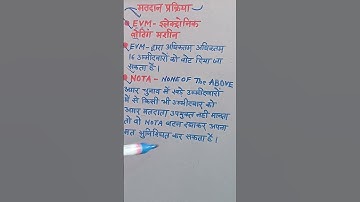 मतदान प्रक्रिया
EVM - इलेक्ट्रोनिक
वोटिंग मशीन
EVM - द्वारा अधिकतम अधिकतम
16 उम्मीदवारों को वोट दिया जा
सकता है।
NOTA - NONE OF The ABOVE
अगर चुनाव में खड़े उम्मीदवारों
में से किसी भी उम्मीदवार को
अगर मतदाता उपयुक्त नहीं मानता
तो वो NOTA बटन दबाकर अपना
मत सुनिश्चित कर सकता है।